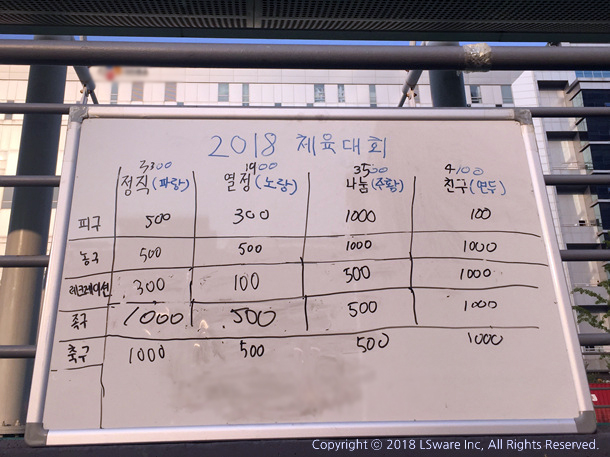 2018 체육대회
3300 1900 3500 4100
정직(파랑) 열정(노랑) 나눔(주황) 친구(연두)
피구 500 300 1000 100
농구 500 500 1000 1000
레크레이션 300 100 500 1000
족구 1000 500 500 1000
축구 1000 500 500 1000
Copyright © 2018 LSware Inc, All Rights Reserved.